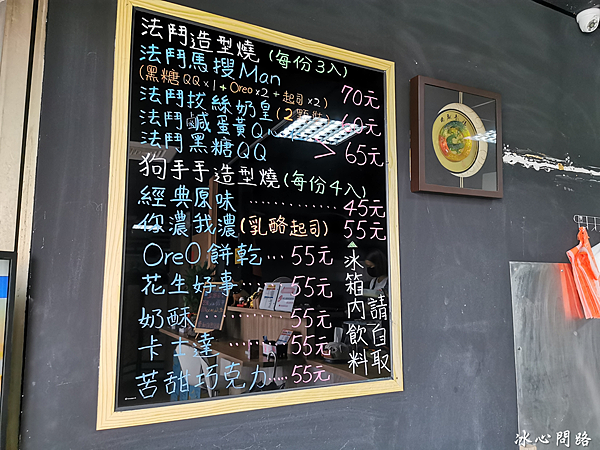 法鬥造型燒(每份3入)
法鬥馬搜Man
(黑糖QQx1+Oreox2+起司x2) 70元
法鬥拔絲奶皇(2顆裝) 60元
法鬥鹹蛋黃Q
法鬥黑糖QQ > 65元
狗手手造型燒(每份4入)
經典原味 ............ 45元
你濃我濃(乳酪起司) 55元
OreO餅乾... 55元
花生好事..... 55元
奶酥 ........ 55元
卡士達 ...... 55元
苦甜巧克力.... 55元
冰箱內飲料
請自取
冰心問路